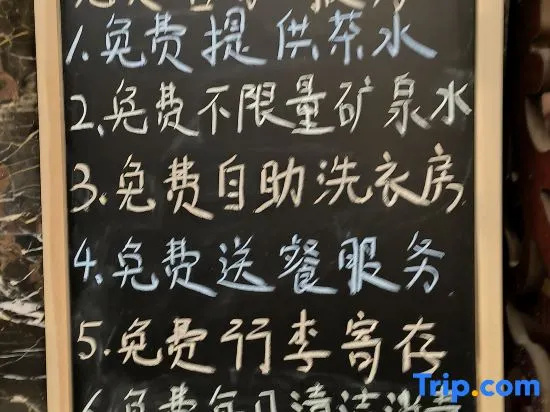 1.免费提供茶水
2.免费不限量矿泉水
3.免费自助洗衣房
4.免费送餐服务
5.免费行李寄存
6.免费每日清洁
Trip.com